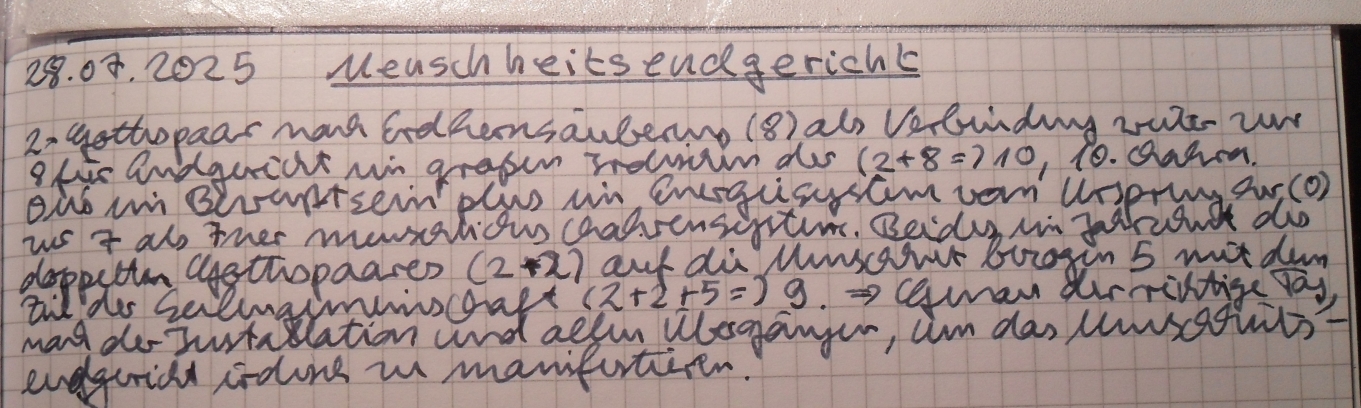 28.07.2025 Menschheitsendgericht
2= Gottspaar nach Erdkernsäuberung (8) als Verbindung weiter zur
9 für Endgericht im großen irdischen der (2+8=) 10, 10. Chakra.
0 bis im Bewußtsein plus im Energiesystem vom Ursprung zur (0)
zur 7 als 7ner menschliches Chakrensystem. Beides im Jahrzehnt des
doppelten Gottspaares (2+2) auf die Menschheit bezogen 5 mit dem
Ziel der Seelengemeinschaft (2+2+5=) 9. ⇒ Genau der richtige Tag,
nach der Installation und allen Übergängen, um das Menschheits-
endgericht irdisch zu manifestieren.